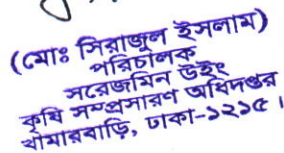 (মোঃ সিরাজুল ইসলাম)
পরিচালক
সরেজমিন উইং
কৃষি সম্প্রসারণ অধিদপ্তর
খামারবাড়ি, ঢাকা-১২১৫।